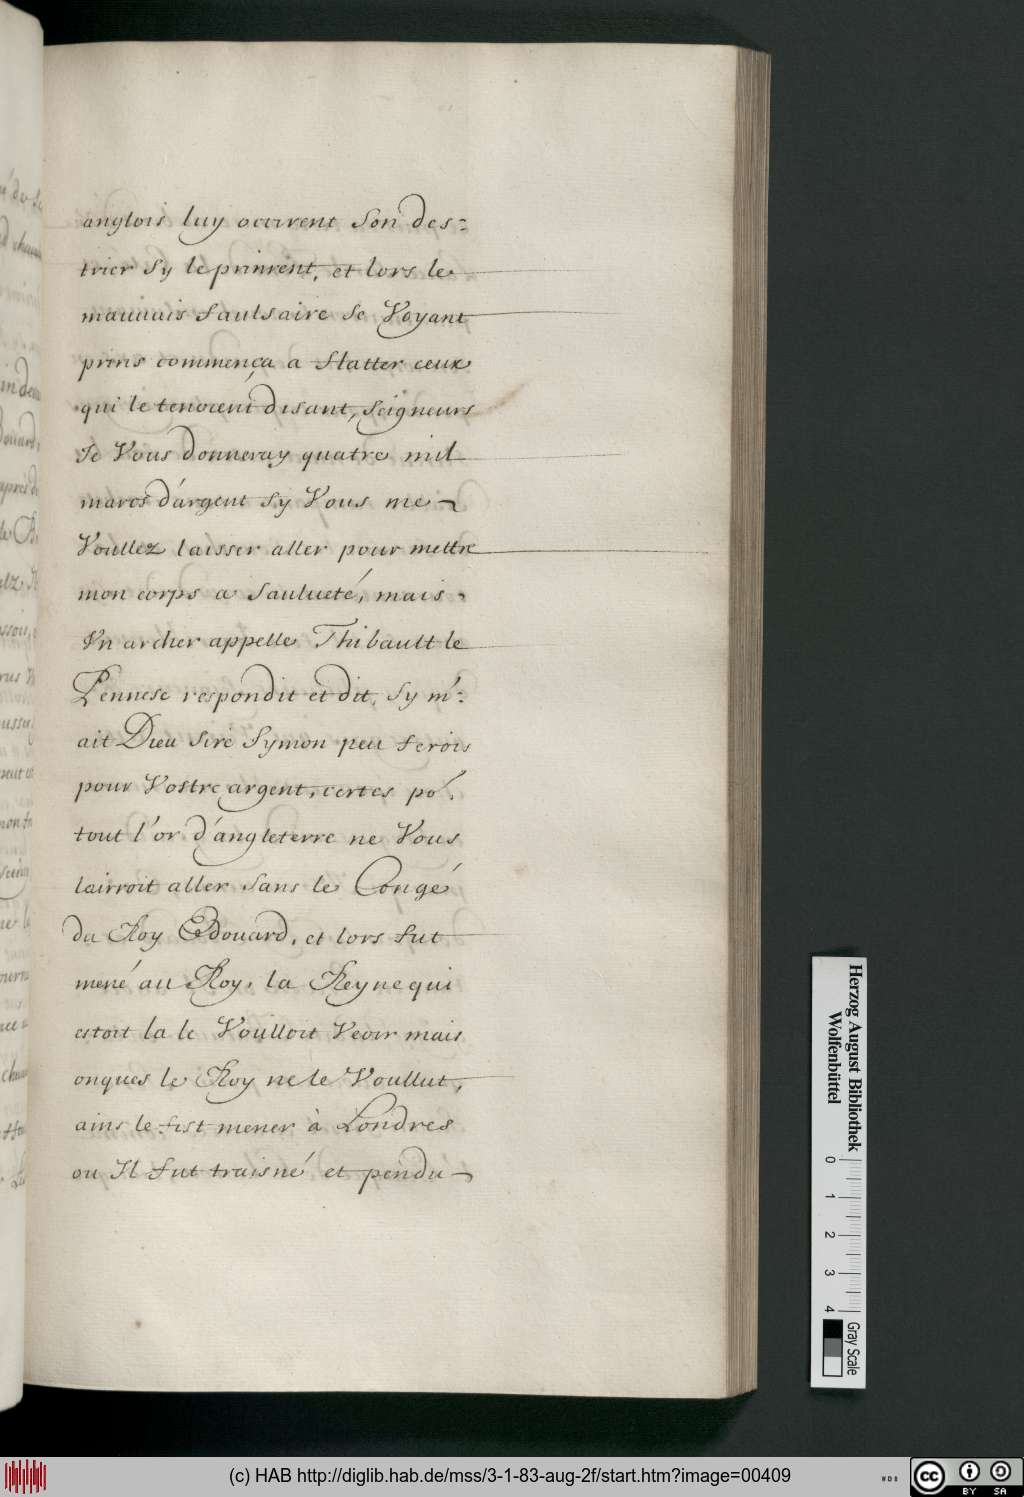 anglois luy occirent son des=
trier sy le prinrent, et lors le
mauuais faulsaire se Voyant
prins commença a flatter ceux
qui le tenoient disant, seigneurs
Je Vous donneray quatre mil
marcs d'argent sy Vous me
Voullez laisser aller pour mettre
mon corps a saulueté, mais
Vn archer appelle Thibault le
respondit et dit, sy m'=
ait Dieu sire Symon peu ferois
pour Vostre argent, certes po.
tout l'or d'angleterre ne Vous
lairroit aller sans le Congé
du Roy Edouard, et lors fut
mené au Roy, la Reyne qui
estoit la le Voulloit Veoir mais
onques le Roy ne le Voullut,
ains le fist mener à Londres
ou Il fut traisné et pendu
Herzog August Bibliothek
Wolfenbüttel
0 1 2 3 4
Gray Scale
(c) HAB http://diglib.hab.de/mss/3-1-83-aug-2f/start.htm?image=00409
WDB
cc BY SA